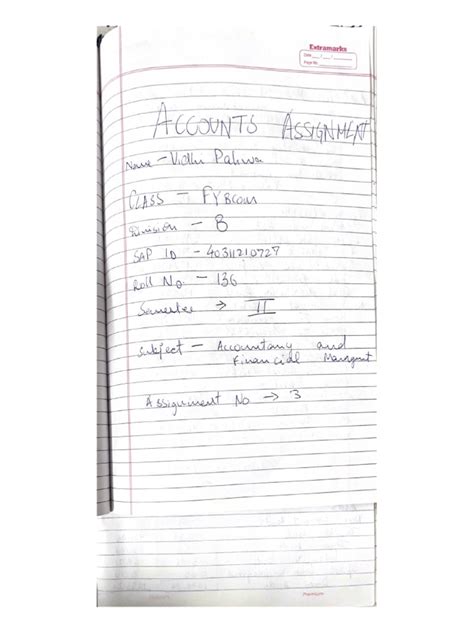 Extramarks
Date
Page No.
ACCOUNTS ASSIGNMENT
Name - Vidhi Pahwa
CLASS - FYBCom
Division - B
SAP ID - 40311210727
Roll No - 136
Semester → II
Subject - Accountany and
Financial Managment
Assignment No → 3
Premium